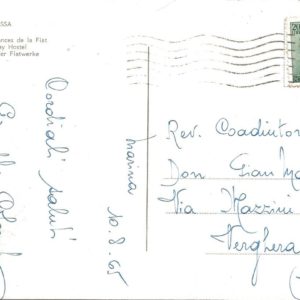 SSA
nces de la Fiat
ay Hostel
er Fiatwerke
Cordiali saluti
marina 10.8.65
Rev. Coadiutor
Don Gian Ma
Via Mazzini
Verghera